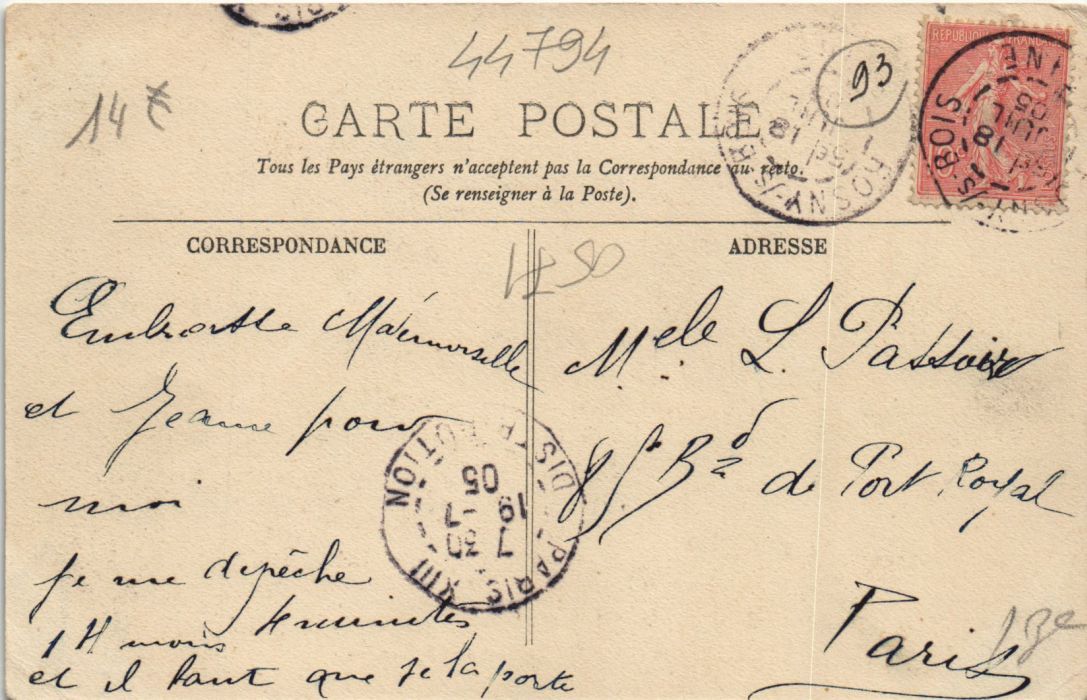 44794
14 €
93
CARTE POSTALE
Tous les Pays étrangers n'acceptent pas la Correspondance au recto.
(Se renseigner à la Poste).
REPUBLIQUE FRANÇAISE
ROSNY-S-BOIS
ROSNY-S-BOIS
CORRESPONDANCE
Embrasse
et Jeanne pour
moi
je me dépêche
1 H moins 4 minutes
et il faut que je la porte
PARIS XIII DISTRIBUTION
7 30
19 -7
05
ADRESSE
Melle L.
Bd de Port Royal
Paris
13e